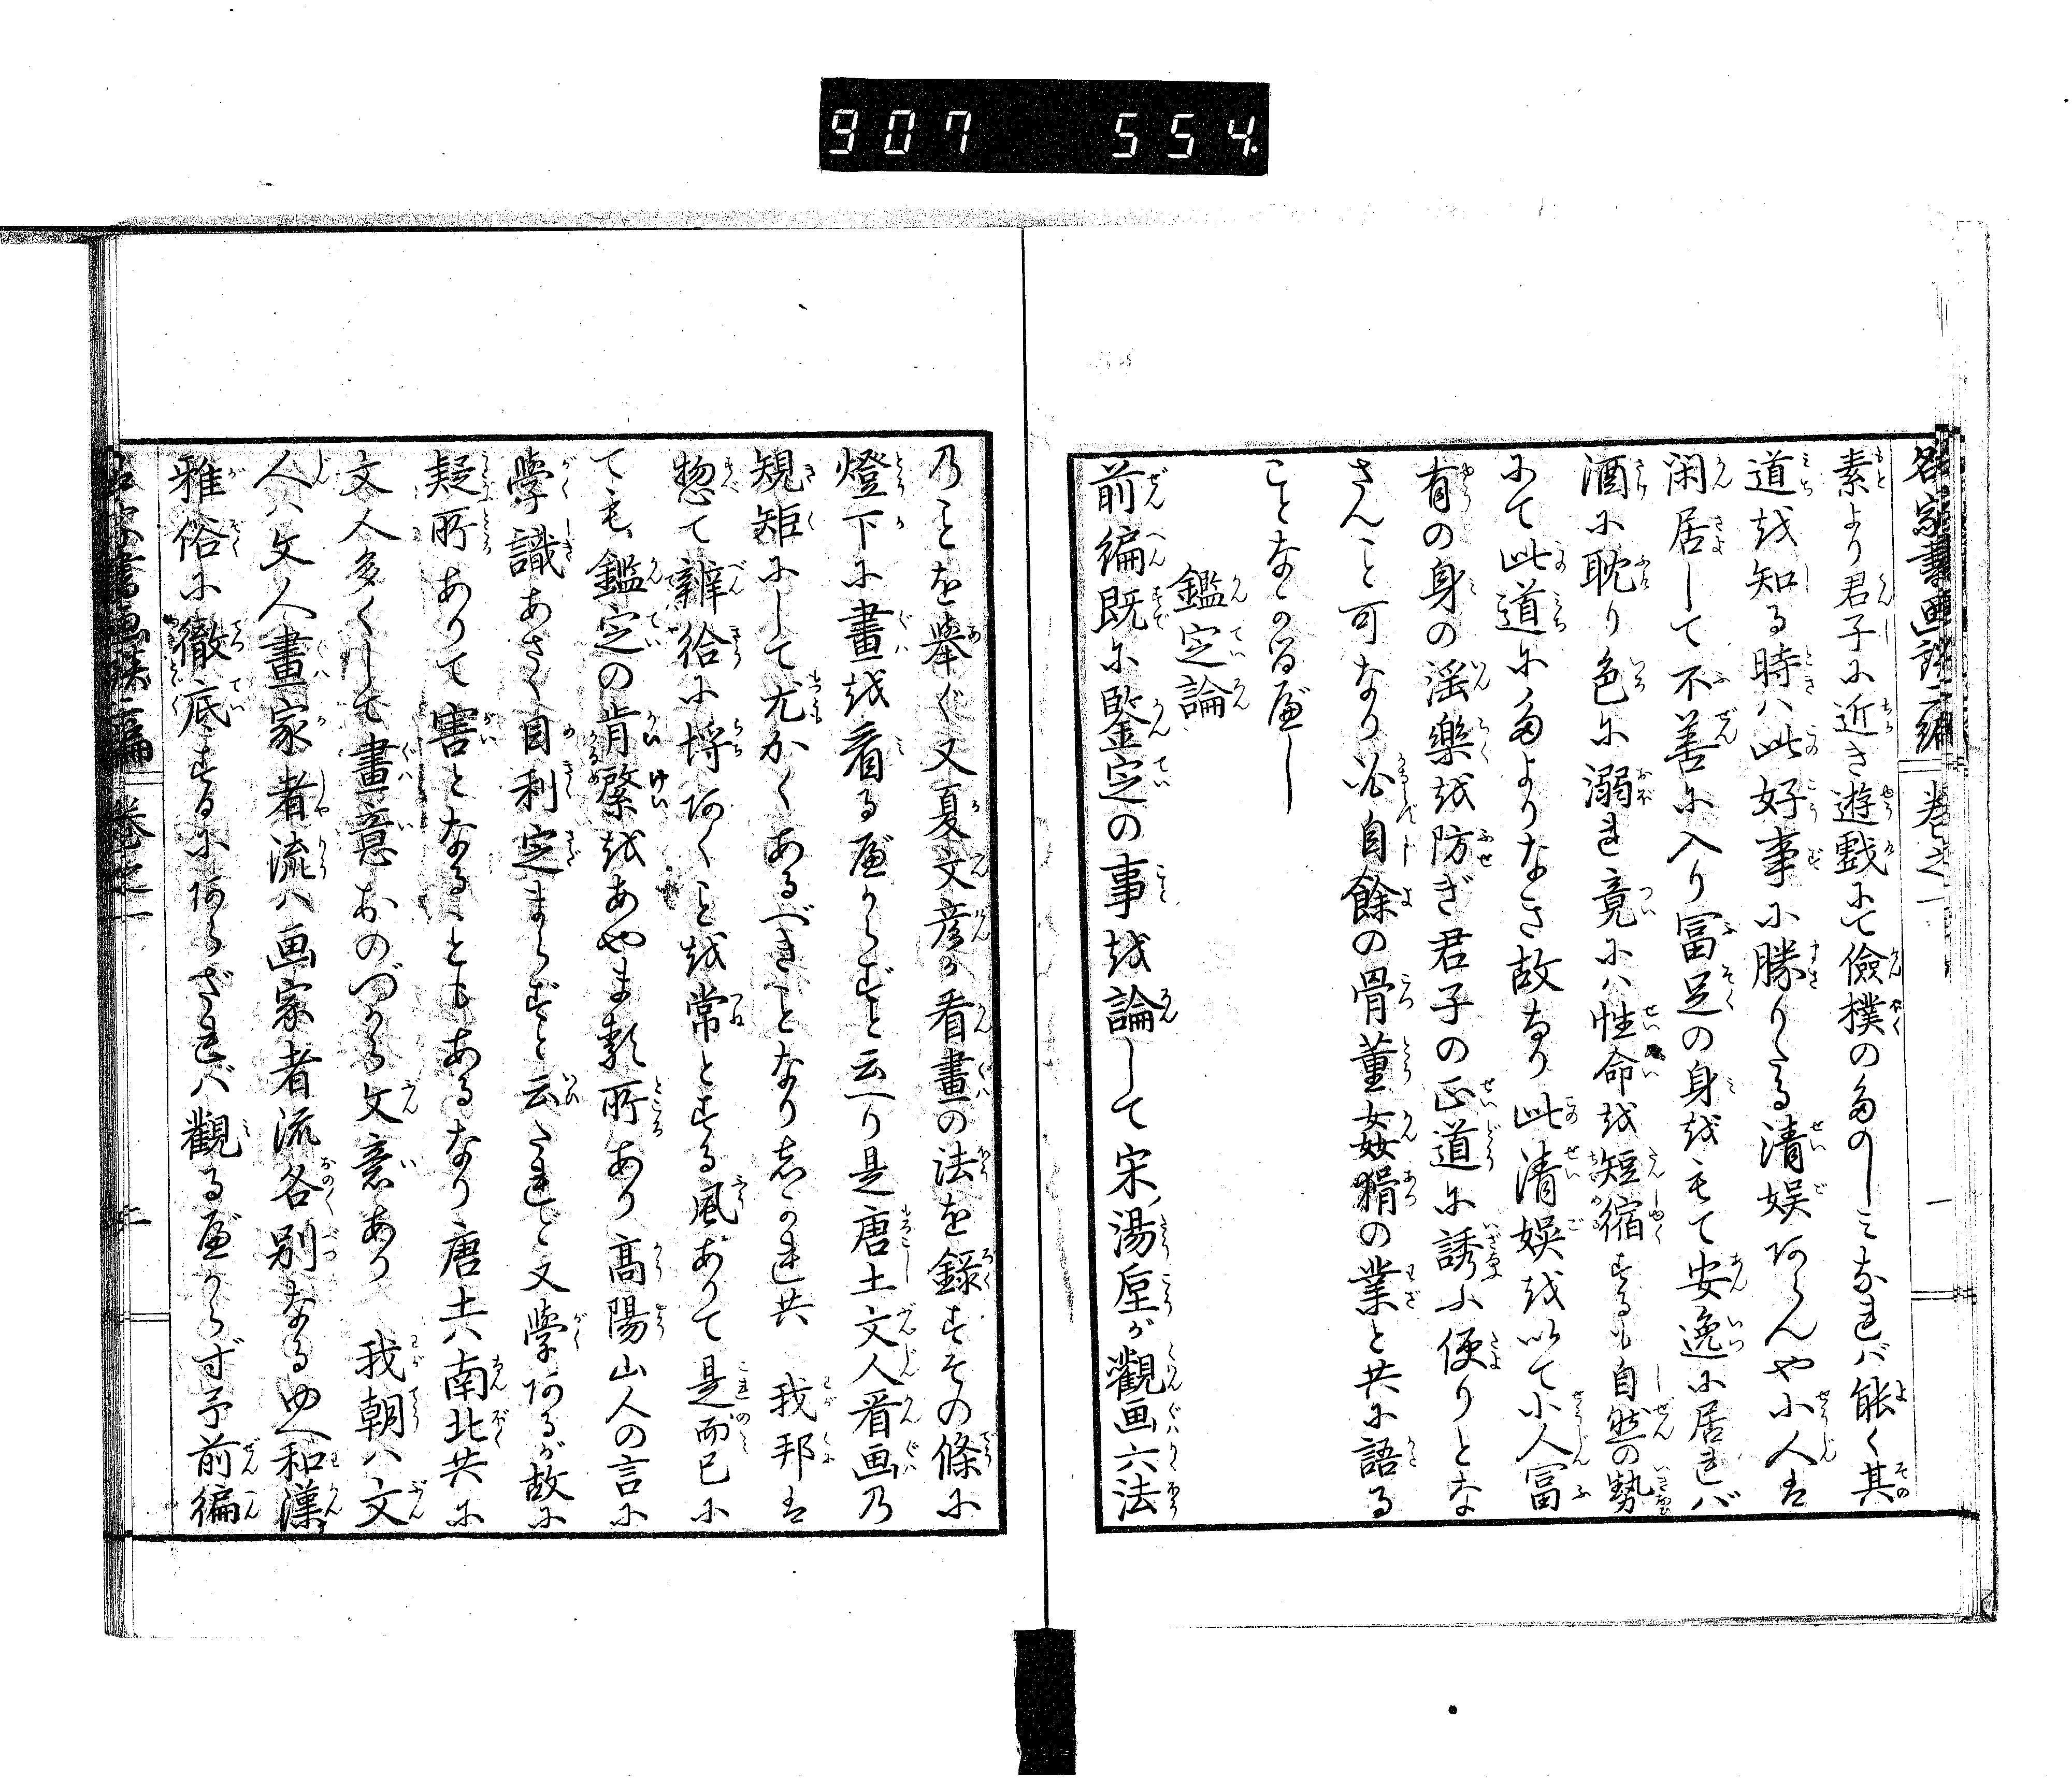 907 554
名家書画談二編 巻之一 一
素より君子に近き遊戯にて儉樸のたのしミなれバ能く其
道を知る時ハ此好事に勝りたる清娯あらんや小人は
閑居して不善に入り冨足の身をもて安逸に居れバ
酒に耽り色に溺れ竟にハ性命を短縮するも自然の勢
にて此道にたよりなき故なり此清娯を以て小人冨
有の身の滛樂を防ぎ君子の正道に誘ふ便りとな
さんこと可なり必自餘の骨董姦猾の業と共に語る
ことなかるべし
鑑定論
前編既に鑒定の事を論して宋ノ湯垕が觀画六法
乃ことを擧ぐ又夏文彦が看畫の法を録すその條に
燈下に畫を看るべからずと云り是唐土文人看画乃
規矩にして尤かくあるべきことなり志かれ共 我邦は
惣て辨給に埒あくことを常とする風ありて是而已に
ても鑑定の肯綮をあやまる所あり髙陽山人の言に
學識あさく目利定まらずと云たれど文學あるが故に
疑所ありて害となることもあるなり唐土ハ南北共に
文人多くして畫意おのづから文意あり 我朝ハ文
人ハ文人畫家者流ハ画家者流各別なるゆへ和漢
雅俗に徹底するにあらざれバ觀るべからず予前編
名家書画談二編 巻之一 二